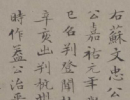 右蘇文忠公
公嘉祐元年
已名判登聞
辛亥出判杭州
時作益公治